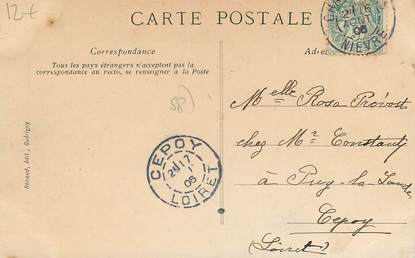 12 €
CARTE POSTALE
Correspondance
Tous les pays étrangers n'acceptent pas la
correspondance au recto, se renseigner à la Poste
58)
NIEVRE
Melle Rosa Prévost
chez Mr Constant
à Puy-la-
Cepoy
(Loiret)
CEPOY
17
05
LOIRET
Renaud, édit., Guérigny